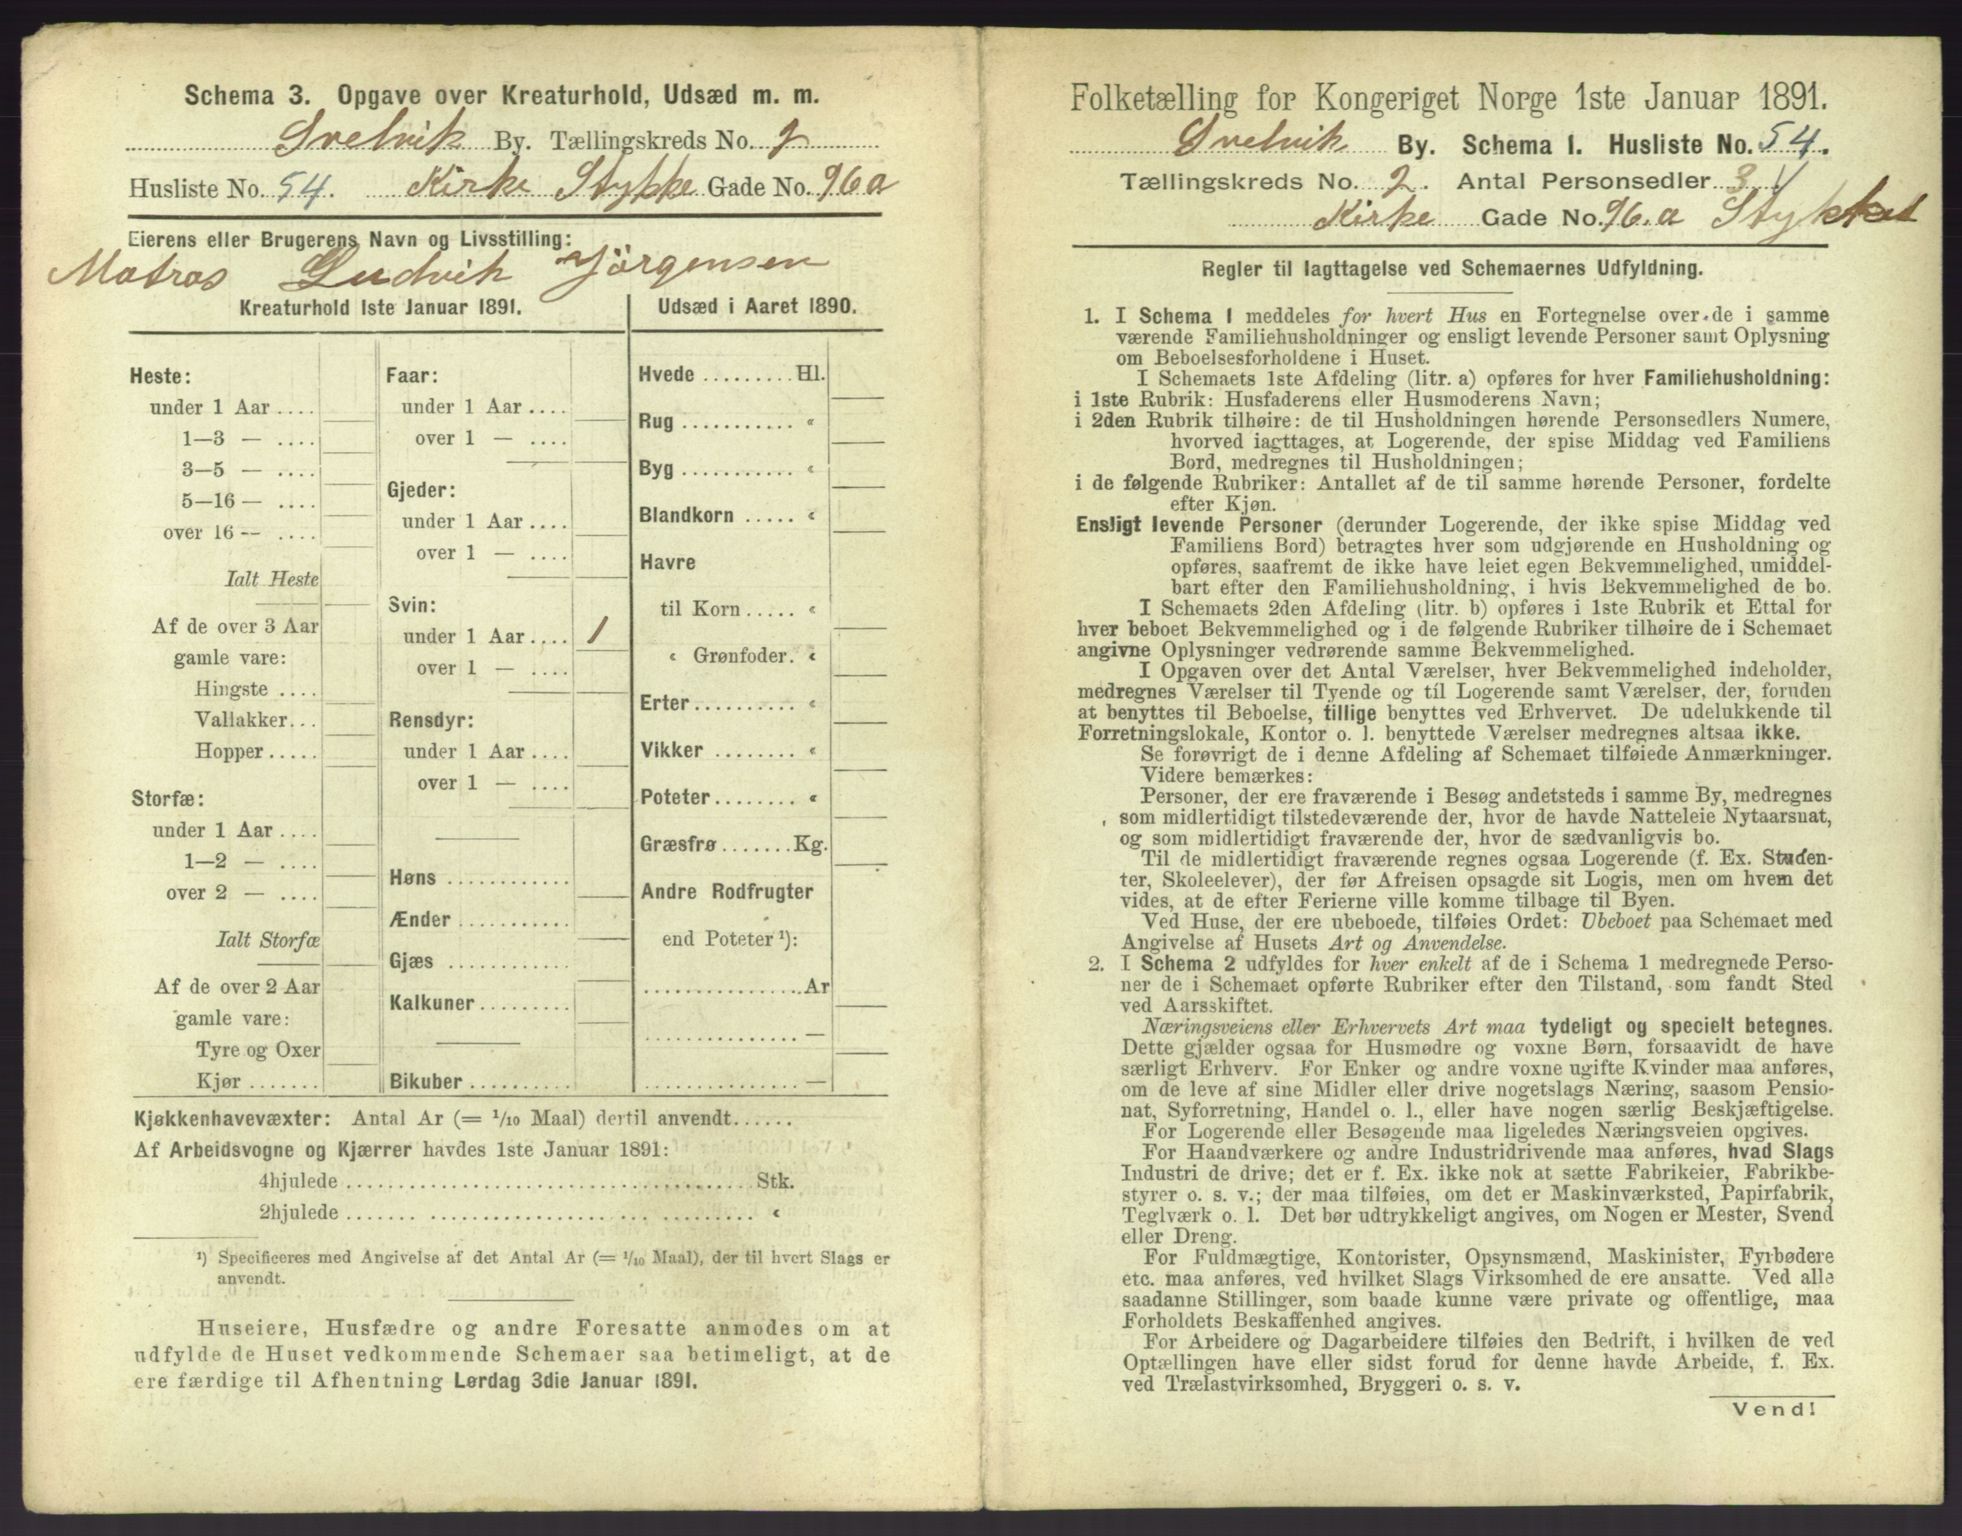 Schema 3. Opgave over Kreaturhold, Udsæd m. m.
Svelvik By. Tællingskreds No. 2
Husliste No. 54. Kirke Stykke Gade No. 96a
Eierens eller Brugerens Navn og Livsstilling:
Matros Ludvik Jørgensen
Kreaturhold 1ste Januar 1891.
Heste:
under 1 Aar ....
1—3 — ....
3—5 — ....
5—16 — ....
over 16 — ....
Ialt Heste
Af de over 3 Aar
gamle vare:
Hingste ....
Vallakker...
Hopper .....
Storfæ:
under 1 Aar ....
1—2 — ....
over 2 — ....
Ialt Storfæ
Af de over 2 Aar
gamle vare:
Tyre og Oxer
Kjør .......
Faar:
under 1 Aar ....
over 1 — ....
Gjeder:
under 1 Aar ....
over 1 — ....
Svin:
under 1 Aar .... 1
over 1 — ....
Rensdyr:
under 1 Aar ....
over 1 — ....
Høns ............
Ænder ...........
Gjæs ............
Kalkuner.........
Bikuber ..........
Udsæd i Aaret 1890.
Hvede .........Hl.
Rug ........... «
Byg ........... «
Blandkorn ..... «
Havre
til Korn ..... «
« Grønfoder. «
Erter.......... «
Vikker ........ «
Poteter........ «
Græsfrø .......Kg.
Andre Rodfrugter
end Poteter ¹):
................Ar
................—
................—
Kjøkkenhavevæxter: Antal Ar (= 1/10 Maal) dertil anvendt......
Af Arbeidsvogne og Kjærrer havdes 1ste Januar 1891:
4hjulede ........................................Stk.
2hjulede ........................................ «
¹) Specificeres med Angivelse af det Antal Ar (= 1/10 Maal), der til hvert Slags er
anvendt.
Huseiere, Husfædre og andre Foresatte anmodes om at
udfylde de Huset vedkommende Schemaer saa betimeligt, at de
ere færdige til Afhentning Lørdag 3die Januar 1891.
Folketælling for Kongeriget Norge 1ste Januar 1891.
Svelvik By. Schema 1. Husliste No. 54.
Tællingskreds No. 2. Antal Personsedler 3
Kirke Gade No. 96.a Stykket
Regler til Iagttagelse ved Schemaernes Udfyldning.
1. I Schema 1 meddeles for hvert Hus en Fortegnelse over de i samme
værende Familiehusholdninger og ensligt levende Personer samt Oplysning
om Beboelsesforholdene i Huset.
I Schemaets 1ste Afdeling (litr. a) opføres for hver Familiehusholdning:
i 1ste Rubrik: Husfaderens eller Husmoderens Navn;
i 2den Rubrik tilhøire: de til Husholdningen hørende Personsedlers Numere,
hvorved iagttages, at Logerende, der spise Middag ved Familiens
Bord, medregnes til Husholdningen;
i de følgende Rubriker: Antallet af de til samme hørende Personer, fordelte
efter Kjøn.
Ensligt levende Personer (derunder Logerende, der ikke spise Middag ved
Familiens Bord) betragtes hver som udgjørende en Husholdning og
opføres, saafremt de ikke have leiet egen Bekvemmelighed, umiddel-
bart efter den Familiehusholdning, i hvis Bekvemmelighed de bo.
I Schemaets 2den Afdeling (litr. b) opføres i 1ste Rubrik et Ettal for
hver beboet Bekvemmelighed og i de følgende Rubriker tilhøire de i Schemaet
angivne Oplysninger vedrørende samme Bekvemmelighed.
I Opgaven over det Antal Værelser, hver Bekvemmelighed indeholder,
medregnes Værelser til Tyende og til Logerende samt Værelser, der, foruden
at benyttes til Beboelse, tillige benyttes ved Erhvervet. De udelukkende til
Forretningslokale, Kontor o. l. benyttede Værelser medregnes altsaa ikke.
Se forøvrigt de i denne Afdeling af Schemaet tilføiede Anmærkninger.
Videre bemærkes:
Personer, der ere fraværende i Besøg andetsteds i samme By, medregnes
som midlertidigt tilstedeværende der, hvor de havde Natteleie Nytaarsnat,
og som midlertidigt fraværende der, hvor de sædvanligvis bo.
Til de midlertidigt fraværende regnes ogsaa Logerende (f. Ex. Studen-
ter, Skoleelever), der før Afreisen opsagde sit Logis, men om hvem det
vides, at de efter Ferierne ville komme tilbage til Byen.
Ved Huse, der ere ubeboede, tilføies Ordet: Ubeboet paa Schemaet med
Angivelse af Husets Art og Anvendelse.
2. I Schema 2 udfyldes for hver enkelt af de i Schema 1 medregnede Perso-
ner de i Schemaet opførte Rubriker efter den Tilstand, som fandt Sted
ved Aarsskiftet.
Næringsveiens eller Erhvervets Art maa tydeligt og specielt betegnes.
Dette gjælder ogsaa for Husmødre og voxne Børn, forsaavidt de have
særligt Erhverv. For Enker og andre voxne ugifte Kvinder maa anføres,
om de leve af sine Midler eller drive nogetslags Næring, saasom Pensio-
nat, Syforretning, Handel o. l., eller have nogen særlig Beskjæftigelse.
For Logerende eller Besøgende maa ligeledes Næringsveien opgives.
For Haandværkere og andre Industridrivende maa anføres, hvad Slags
Industri de drive; det er f. Ex. ikke nok at sætte Fabrikeier, Fabrikbe-
styrer o. s. v.; der maa tilføies, om det er Maskinværksted, Papirfabrik,
Teglværk o. l. Det bør udtrykkeligt angives, om Nogen er Mester, Svend
eller Dreng.
For Fuldmægtige, Kontorister, Opsynsmænd, Maskinister, Fyrbødere
etc. maa anføres, ved hvilket Slags Virksomhed de ere ansatte. Ved alle
saadanne Stillinger, som baade kunne være private og offentlige, maa
Forholdets Beskaffenhed angives.
For Arbeidere og Dagarbeidere tilføies den Bedrift, i hvilken de ved
Optællingen have eller sidst forud for denne havde Arbeide, f. Ex.
ved Trælastvirksomhed, Bryggeri o. s. v.
Vend!